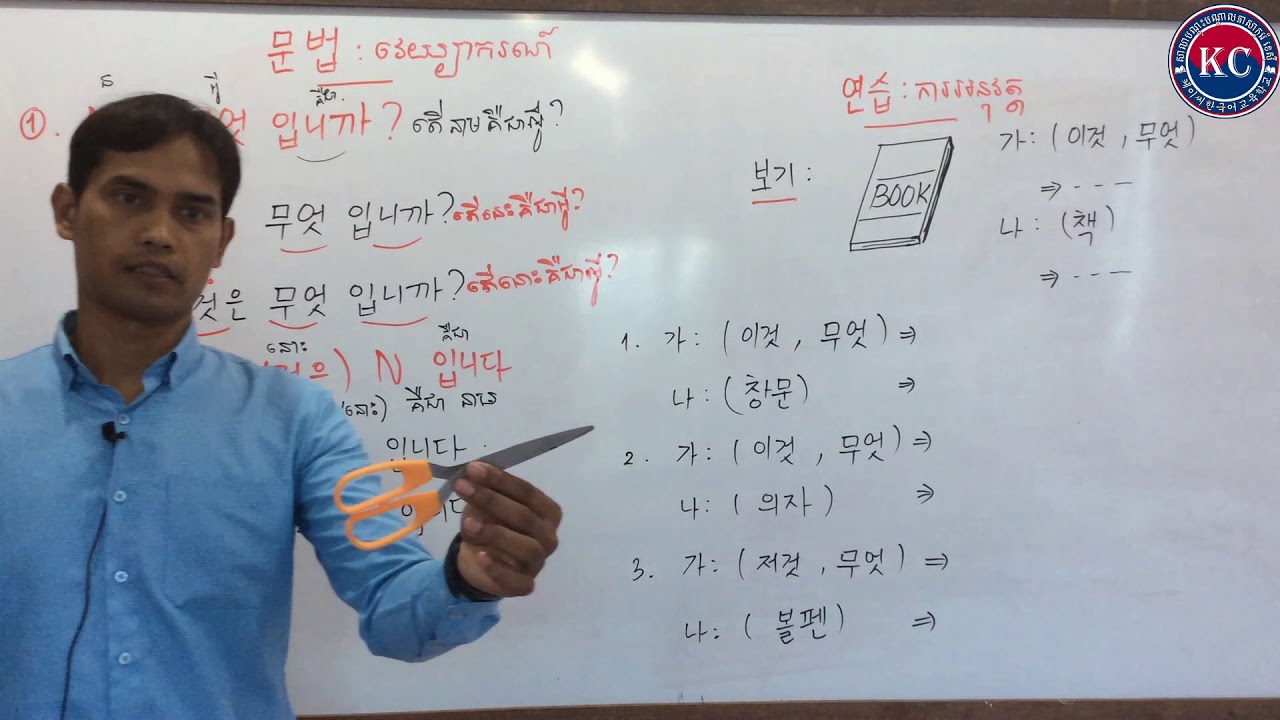 문법 : វេយ្យាករណ៍
ន អ្វី គឺជា
①. 엇 입니까? តើនាមគឺជាអ្វី?
무엇 입니까? តើនេះគឺជាអ្វី?
것은 무엇 입니까? តើនោះគឺជាអ្វី?
នោះ គឺជា
) N 입니다
នោះ) គឺជា នាម
입니다
연습 : ការអនុវត្ត
보기 :
BOOK
가: (이것, 무엇)
⇒ - - -
나: (책)
⇒ - - -
1. 가: (이것, 무엇) ⇒
나: (창문) ⇒
2. 가: (이것, 무엇) ⇒
나: (의자) ⇒
3. 가: (저것, 무엇) ⇒
나: (볼펜) ⇒
KC
케이씨한국어교육학교